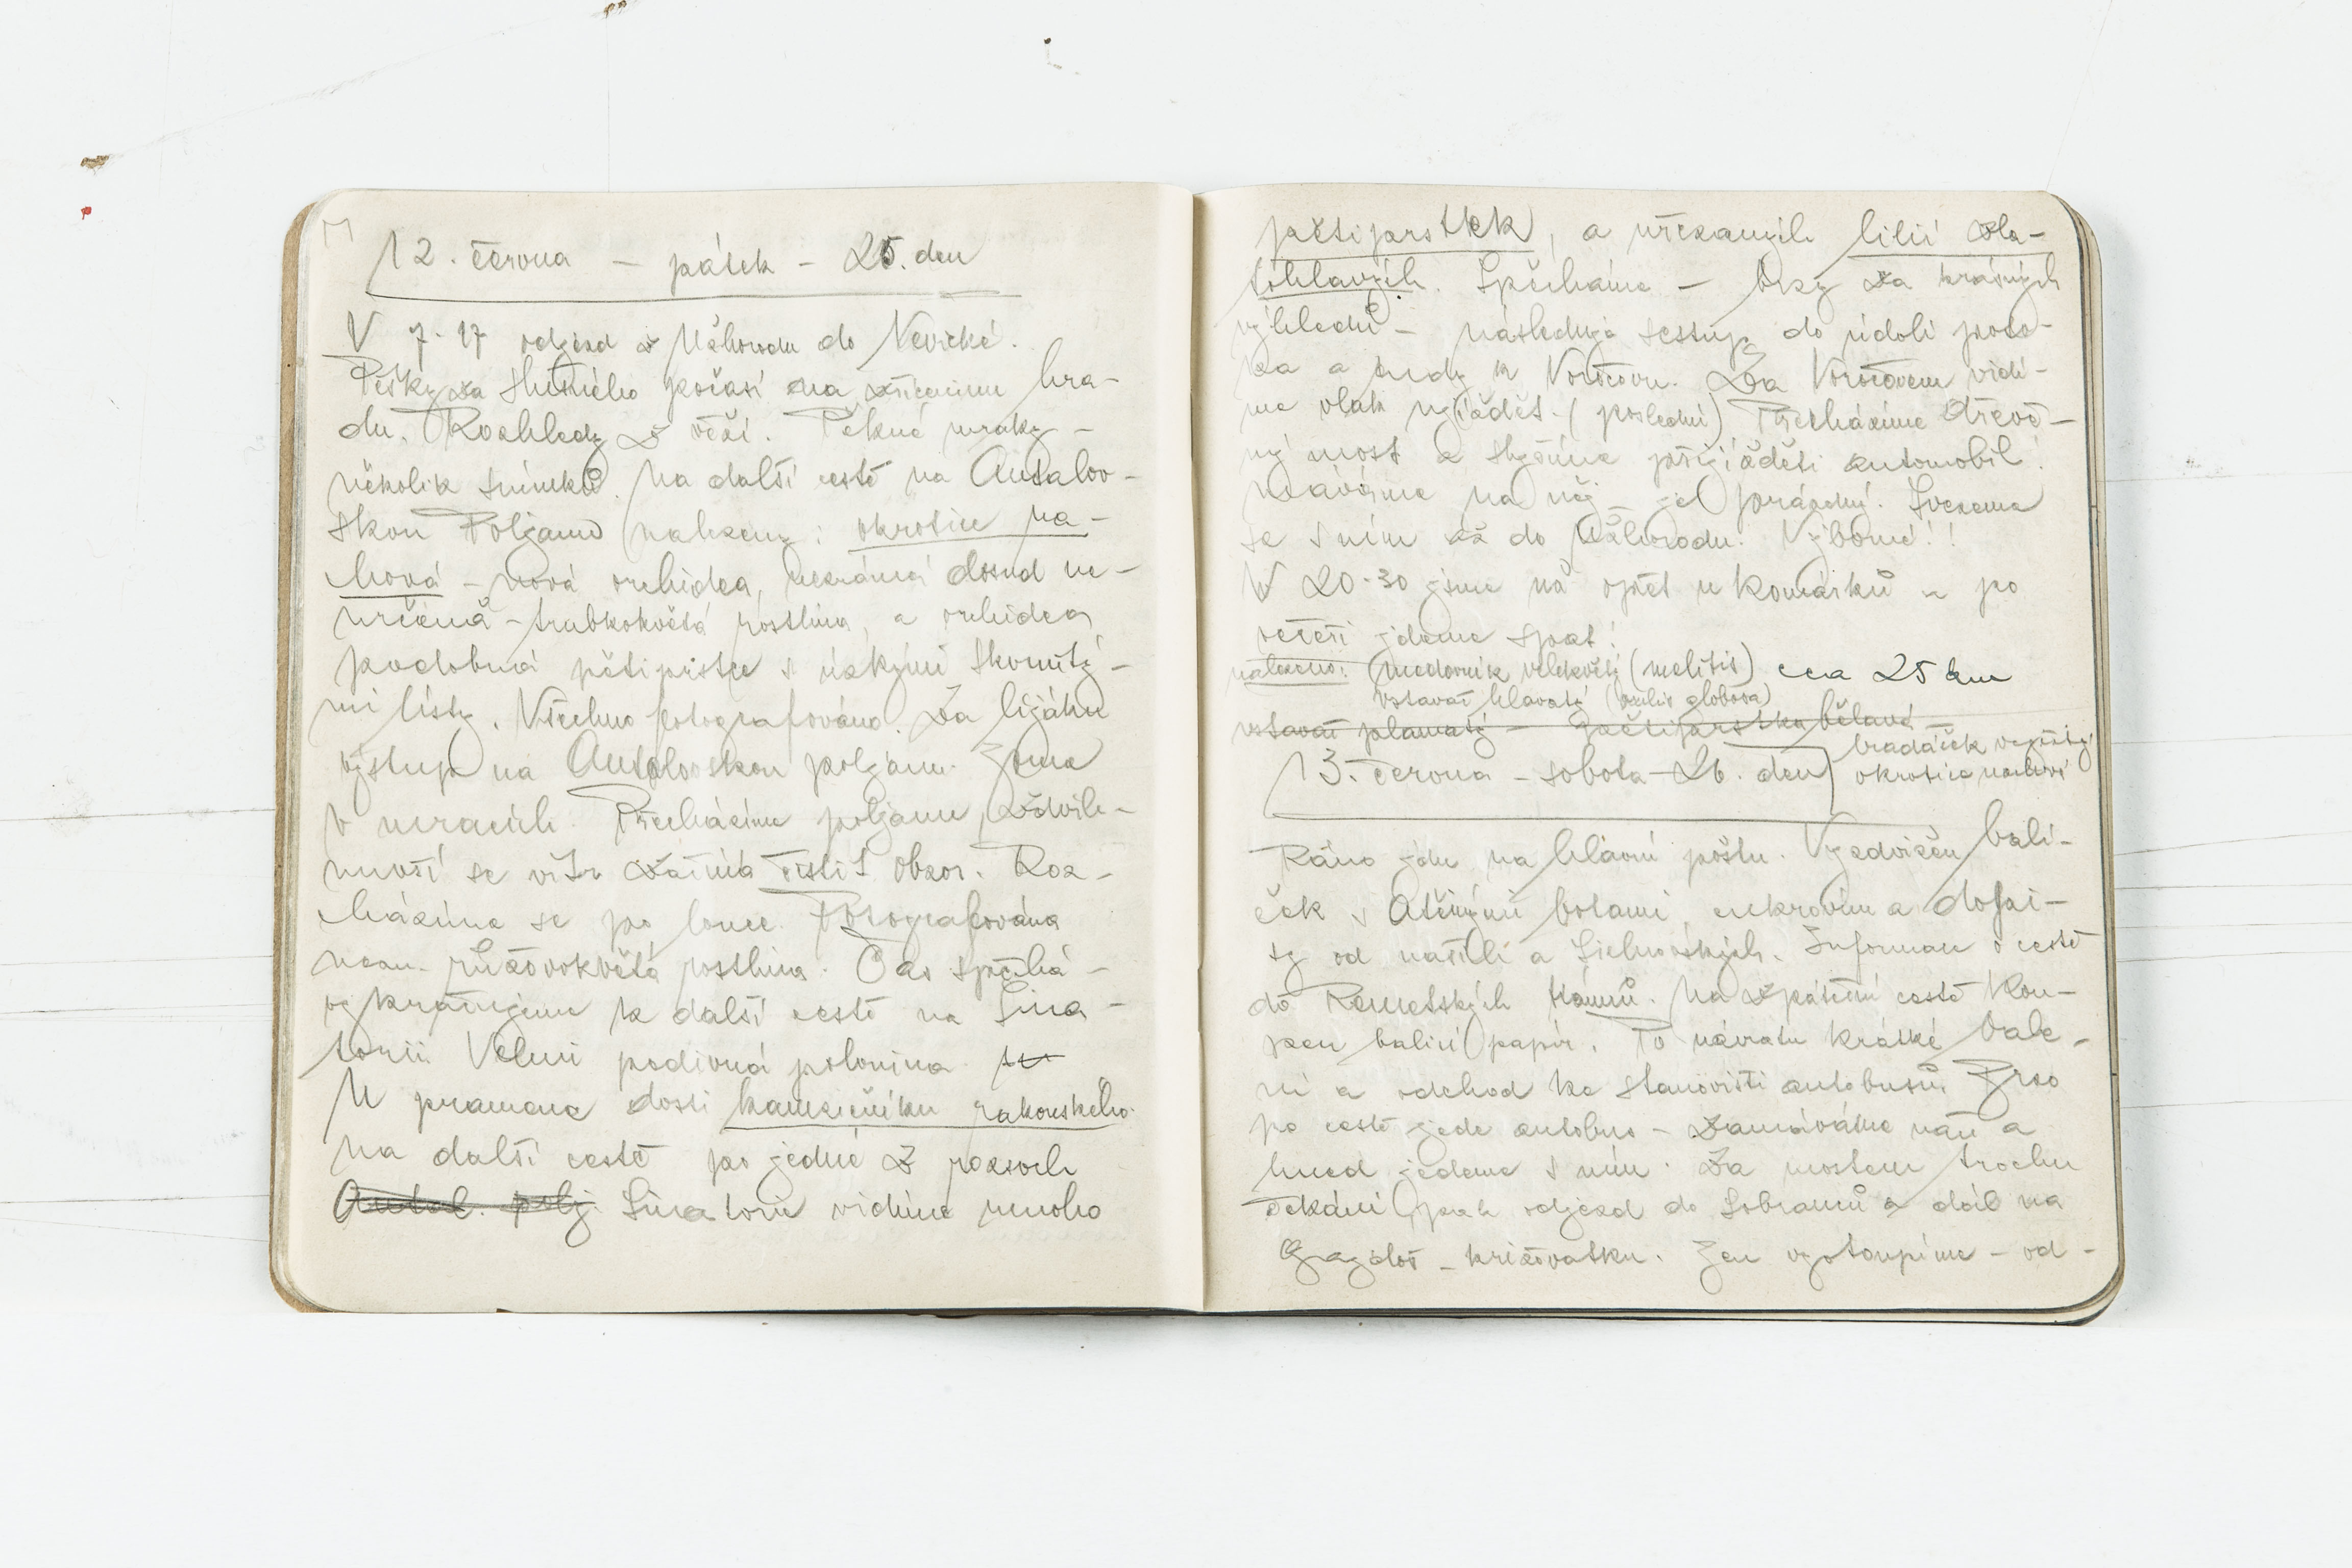 12. června – pátek – 25. den
V 7·17 odjezd z Užhorodu do Nevické.
Pěšky za slunného počasí na zříceninu hra-
du. Rozhledy z věže. Pěkné mraky –
několik snímků. Na další cestě na Antalov-
skou Poljanu nalezeny: okrotice na-
chová – nová orchidea, neznámá dosud ne-
určená – trubkokvětá rostlina, a orchidea
podobná pětiprstce s úzkými skvrnitý-
mi listy. Všechno fotografováno. Za lijáku
výstup na Antalovskou poljanu. Jsme
v mracích. Přecházíme poljanu, zdvih-
nuvší se vítr začíná čistit obzor. Roz-
cházíme se po louce. Fotografována
nezn. růžovokvětá rostlina. Čas spěchá –
vykračujeme k další cestě na Sina-
torii. Velmi podivná polonina.
U pramene dosti kamzičníku rakouského.
Na další cestě po jedné z rozsoch
Antal. polj. Sinatorii vidíme mnoho
pětiprstek, a uřezaných lilií zla-
tohlavých. Spěcháme – brzy za krásných
výhledů – následuje sestup do údolí poto-
ka a tudy k Voročovu. Za Voročovem vidí-
me vlak ujíždět (poslední) Přecházíme dřevě-
ný most a slyšíme přijížděti automobil!
Máváme na něj – jel prázdný. Svezeme
se s ním až do Užhorodu. Výborné!!
V 20·30 jsme již opět u Komárků – po
večeři jdeme spat!
nalezeno: (medovník velekvětý (melitis) cca 25 km
vstavač hlavatý (orchis globosa)
vstavač plamatý – pětiprstka bělavá –
13. června – sobota – 26. den
bradáček vejčitý
okrotice nachová
Ráno jdu na hlavní poštu. Vyzdvižen balí-
ček s botami, cukrovím a dopi-
sy od našich a . Informace o cestě
do Remetských Hámrů. Na zpáteční cestě kou-
pen balicí papír. Po návratu krátké bale-
ní a odchod ke stanovišti autobusů. Brzo
po cestě jede autobus – zamáváme naň a
hned jedeme s ním. Za mostem trochu
čekání, pak odjezd do Sobranců a dál na
křižovatku. Zen vystoupíme – od-